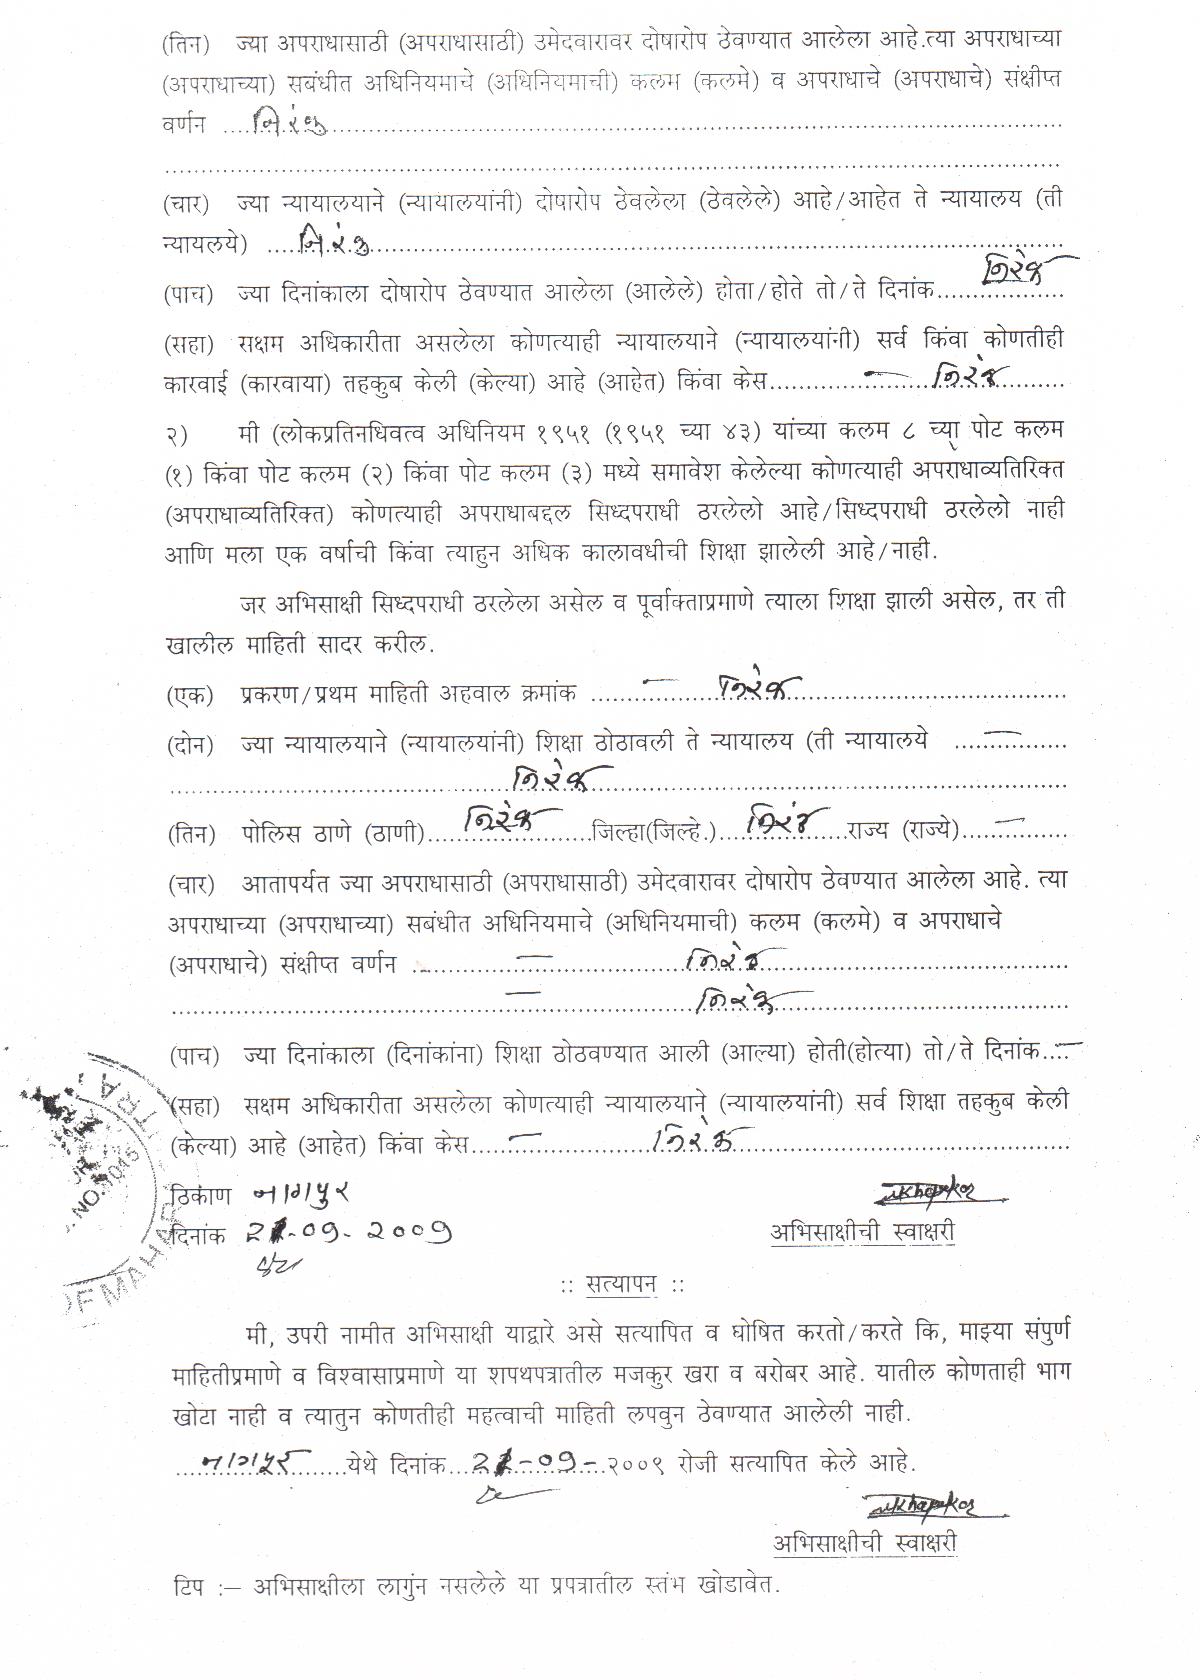 (तिन) ज्या अपराधासाठी (अपराधासाठी) उमेदवारावर दोषारोप ठेवण्यात आलेला आहे.त्या अपराधाच्या
(अपराधाच्या) सबंधीत अधिनियमाचे (अधिनियमाची) कलम (कलमे) व अपराधाचे (अपराधाचे) संक्षीप्त
वर्णन ....निरंक....
(चार) ज्या न्यायालयाने (न्यायालयांनी) दोषारोप ठेवलेला (ठेवलेले) आहे/आहेत ते न्यायालय (ती
न्यायलये) ....निरंक....
(पाच) ज्या दिनांकाला दोषारोप ठेवण्यात आलेला (आलेले) होता/होते तो/ते दिनांक....निरंक
(सहा) सक्षम अधिकारीता असलेला कोणत्याही न्यायालयाने (न्यायालयांनी) सर्व किंवा कोणतीही
कारवाई (कारवाया) तहकुब केली (केल्या) आहे (आहेत) किंवा केस....— निरंक....
२) मी (लोकप्रतिनधिवत्व अधिनियम १९५१ (१९५१ च्या ४३) यांच्या कलम ८ च्या पोट कलम
(१) किंवा पोट कलम (२) किंवा पोट कलम (३) मध्ये समावेश केलेल्या कोणत्याही अपराधाव्यतिरिक्त
(अपराधाव्यतिरिक्त) कोणत्याही अपराधाबद्दल सिध्दपराधी ठरलेलो आहे/सिध्दपराधी ठरलेलो नाही
आणि मला एक वर्षाची किंवा त्याहुन अधिक कालावधीची शिक्षा झालेली आहे/नाही.
जर अभिसाक्षी सिध्दपराधी ठरलेला असेल व पूर्वाक्ताप्रमाणे त्याला शिक्षा झाली असेल, तर ती
खालील माहिती सादर करील.
(एक) प्रकरण/प्रथम माहिती अहवाल क्रमांक ....— निरंक....
(दोन) ज्या न्यायालयाने (न्यायालयांनी) शिक्षा ठोठावली ते न्यायालय (ती न्यायालये ....—....
....निरंक....
(तिन) पोलिस ठाणे (ठाणी)....निरंक....जिल्हा(जिल्हे.)....निरंक....राज्य (राज्ये)....—....
(चार) आतापर्यत ज्या अपराधासाठी (अपराधासाठी) उमेदवारावर दोषारोप ठेवण्यात आलेला आहे. त्या
अपराधाच्या (अपराधाच्या) सबंधीत अधिनियमाचे (अधिनियमाची) कलम (कलमे) व अपराधाचे
(अपराधाचे) संक्षीप्त वर्णन ....— निरंक....
....— निरंक....
(पाच) ज्या दिनांकाला (दिनांकांना) शिक्षा ठोठवण्यात आली (आल्या) होती(होत्या) तो/ते दिनांक....—
(सहा) सक्षम अधिकारीता असलेला कोणत्याही न्यायालयाने (न्यायालयांनी) सर्व शिक्षा तहकुब केली
(केल्या) आहे (आहेत) किंवा केस....— निरंक....
ठिकाण नागपुर
दिनांक 21-09-2009
अभिसाक्षीची स्वाक्षरी
:: सत्यापन ::
मी, उपरी नामीत अभिसाक्षी याद्वारे असे सत्यापित व घोषित करतो/करते कि, माझ्या संपुर्ण
माहितीप्रमाणे व विश्वासाप्रमाणे या शपथपत्रातील मजकुर खरा व बरोबर आहे. यातील कोणताही भाग
खोटा नाही व त्यातुन कोणतीही महत्वाची माहिती लपवुन ठेवण्यात आलेली नाही.
..नागपूर....येथे दिनांक...21-09-२००९ रोजी सत्यापित केले आहे.
अभिसाक्षीची स्वाक्षरी
टिप :– अभिसाक्षीला लागुंन नसलेले या प्रपत्रातील स्तंभ खोडावेत.